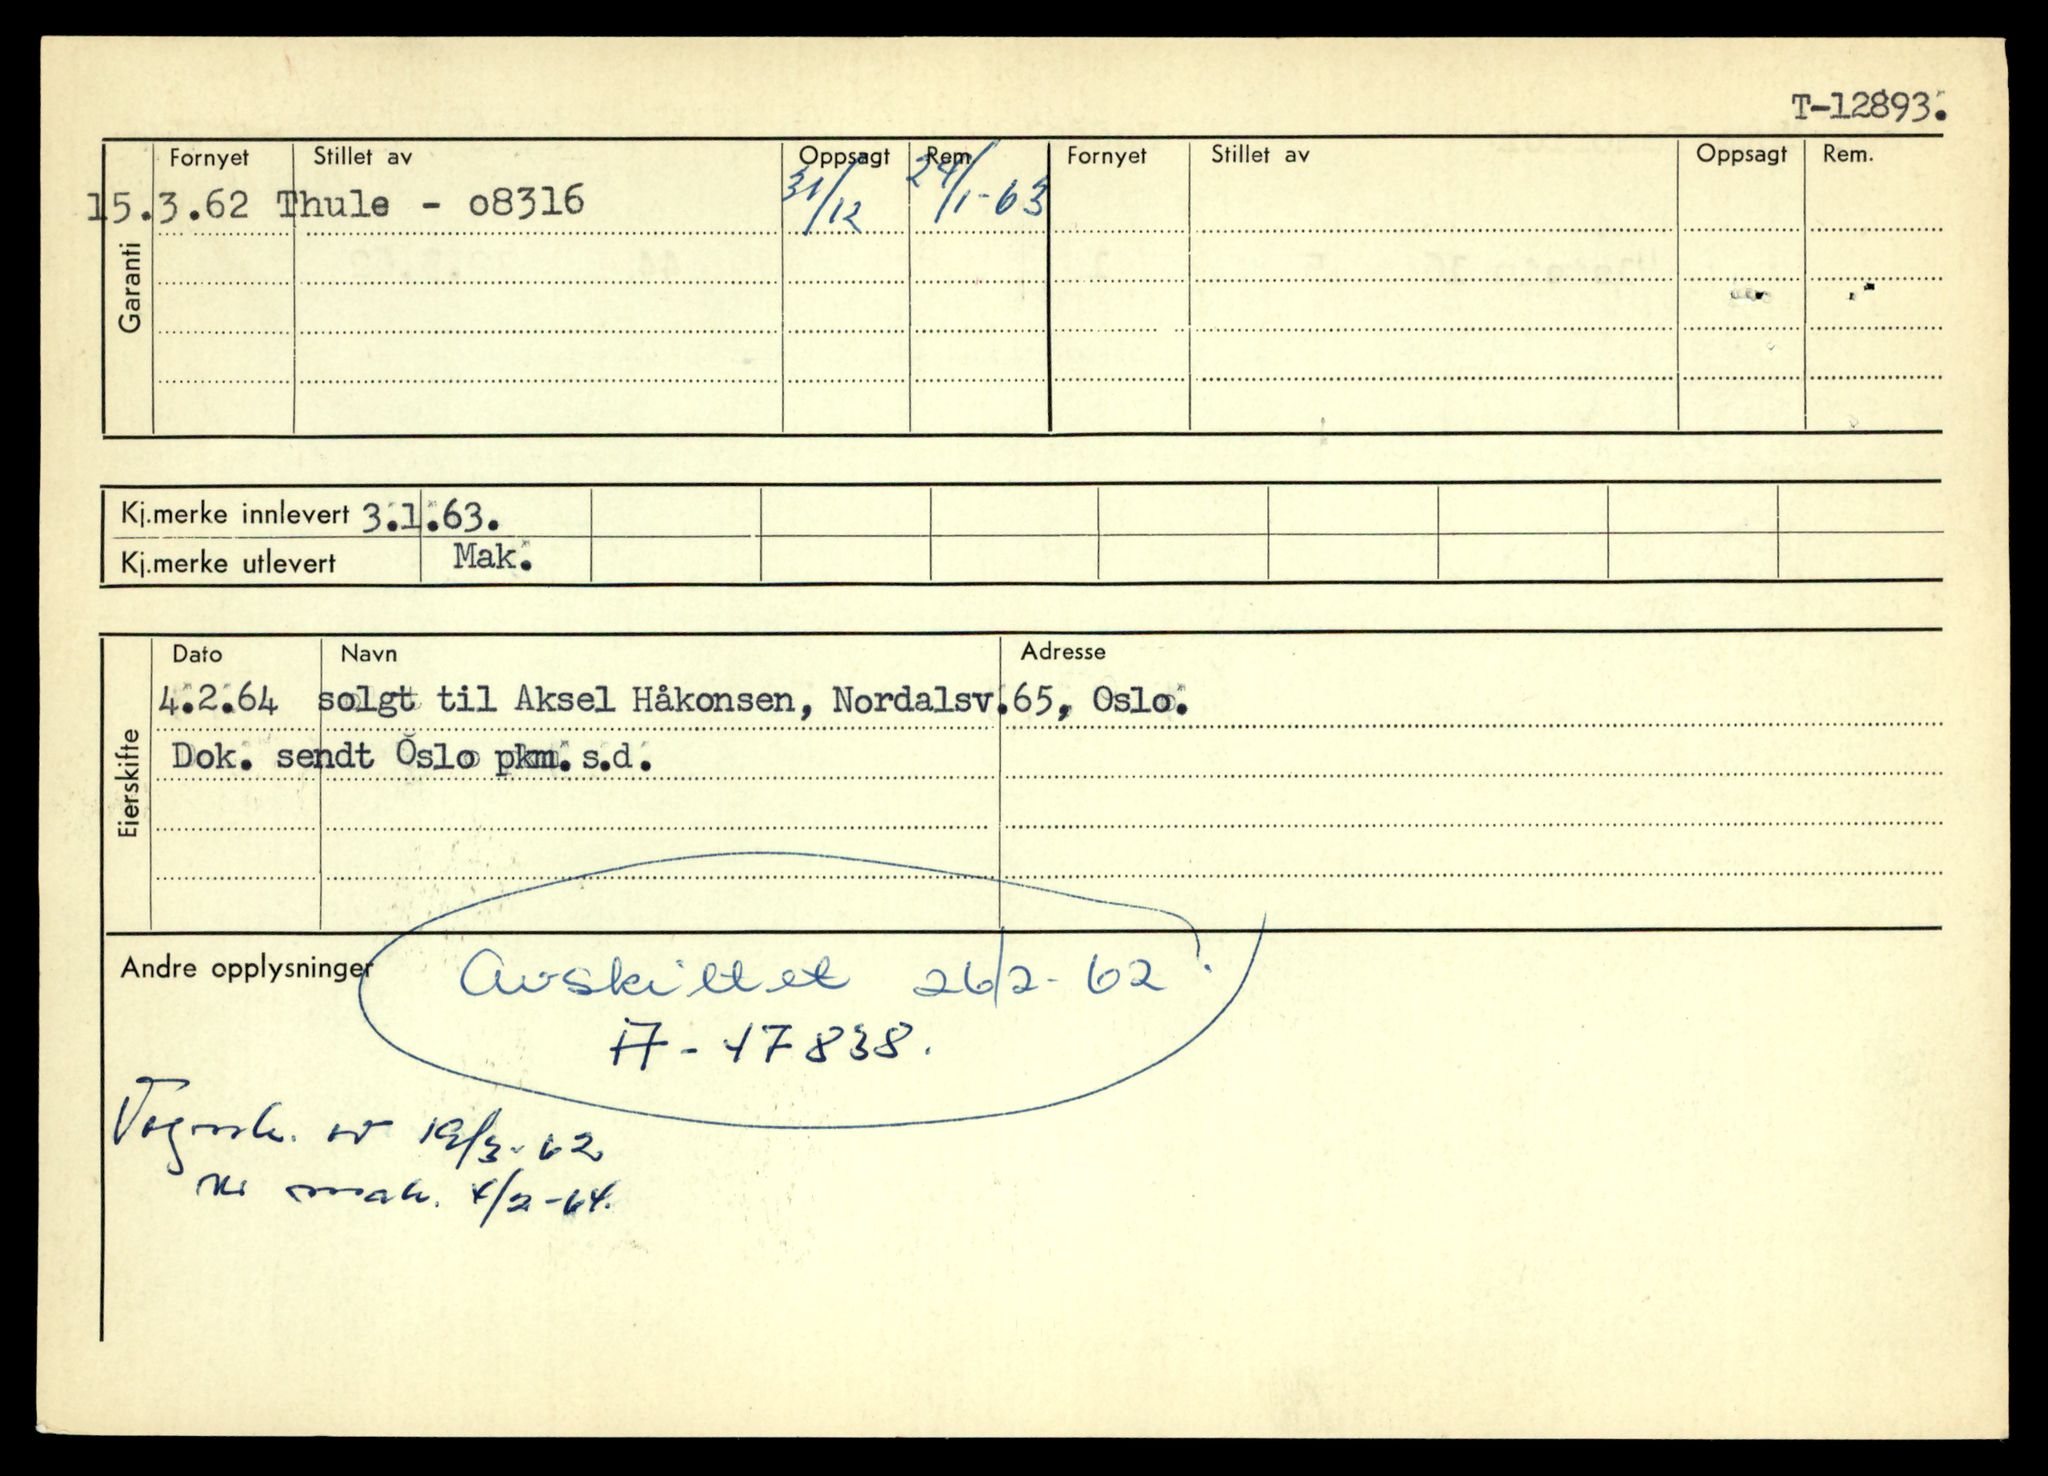 T-12893.
Garanti
Fornyet Stillet av Oppsagt Rem. Fornyet Stillet av Oppsagt Rem.
15.3.62 Thule - o8316 31/12 24/1-63
Kj.merke innlevert 3.1.63.
Kj.merke utlevert Mak.
Eierskifte
Dato Navn Adresse
4.2.64 solgt til Aksel Håkonsen, Nordalsv.65, Oslo.
Dok. sendt Oslo pkm. s.d.
Andre opplysninger
Avskiltet 26/2-62
A-17838.
Vognsk. 19/3-62
mak. 4/2-64.